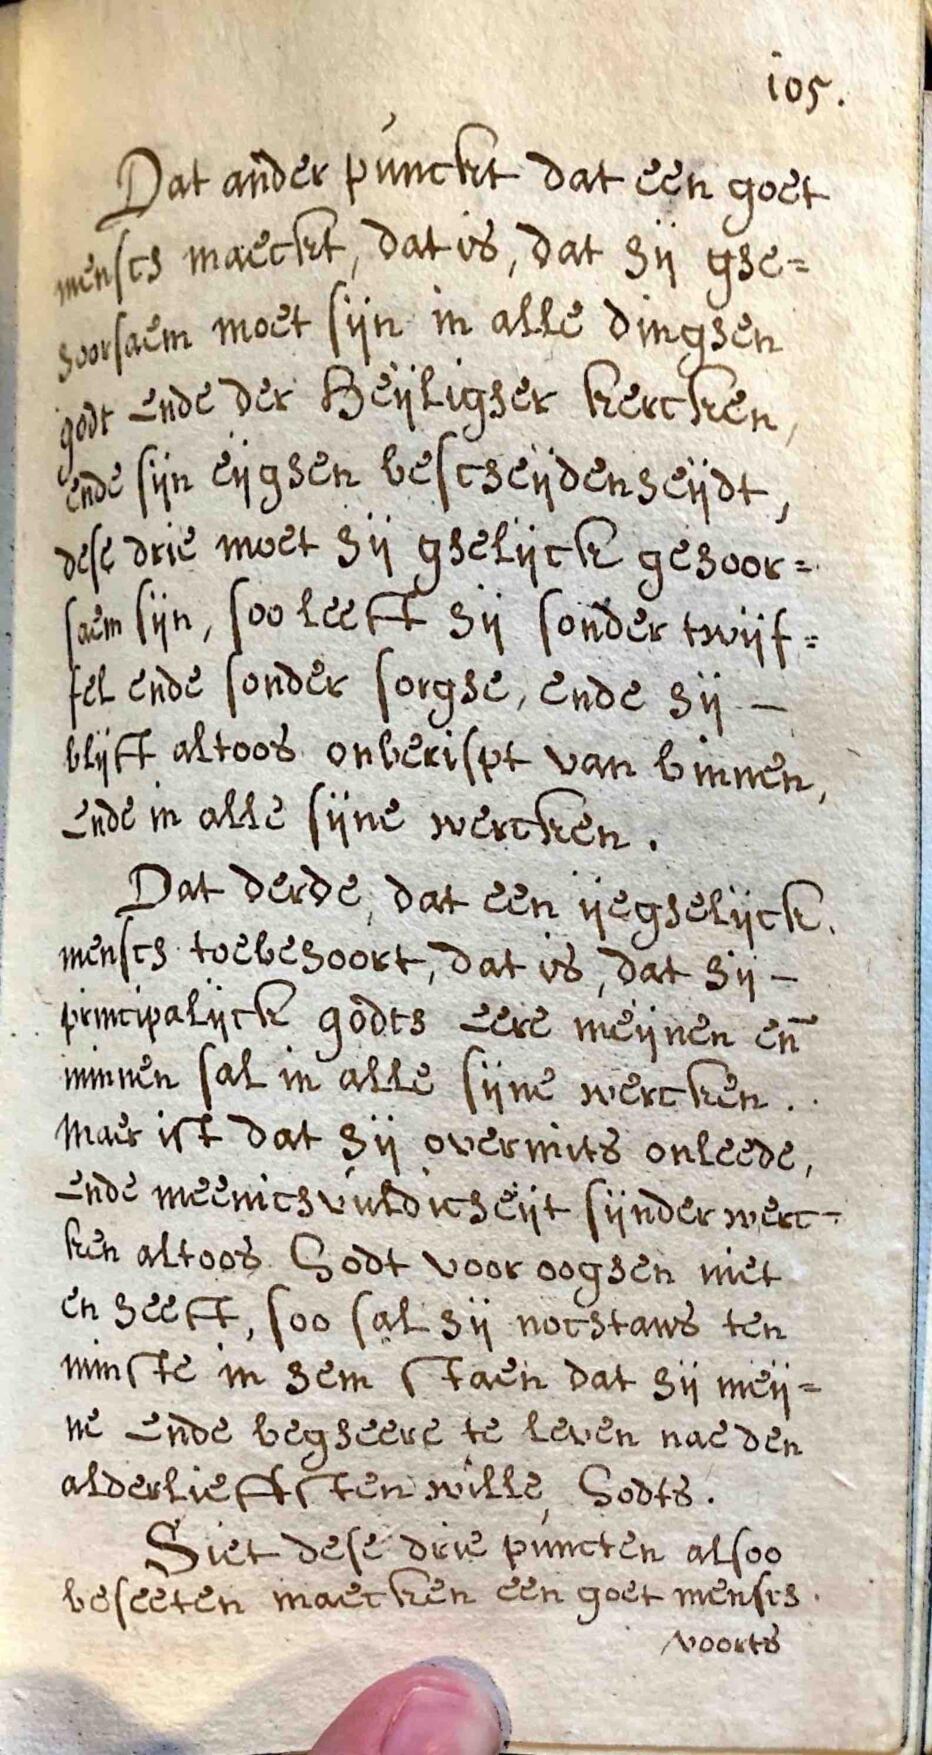 105.
Dat ander punckt dat een goet
mensch maeckt, dat is, dat hij ghe=
hoorsaem moet sijn in alle dinghen
godt ende der Heÿligher kercken,
ende sijn eÿghen bescheÿdenheÿdt,
dese drie moet hij ghelijck gehoor=
saem sijn, soo leeft hij sonder twijf=
fel ende sonder sorghe, ende hij –
blijft altoos onberispt van binnen,
ende in alle sijne wercken.
Dat derde, dat een ijeghelijck.
mensch toebehoort, dat is, dat hij –
principalijck godts eere meÿnen en̄
minnen sal in alle sijne wercken.
Maer ist dat hij overmits onleede,
ende meenichvuldicheÿt sijnder werc-
ken altoos Godt voor ooghen niet
en heeft, soo sal hij nochtans ten
minste in hem staen dat hij meÿ=
ne ende begheere te leven nae den
alderlieftsten wille Godts.
Siet dese drie puncten alsoo
beseeten maecken een goet mensch.
voorts